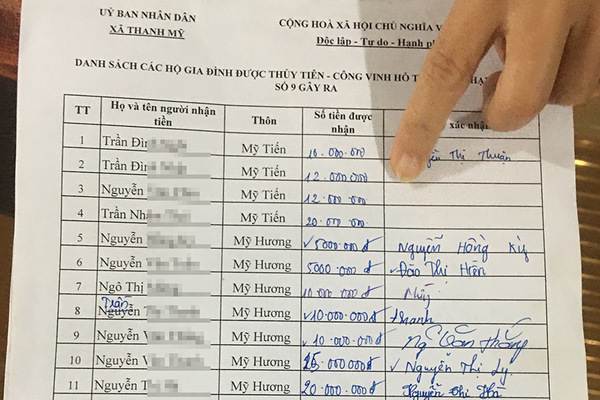 UỶ BAN NHÂN DÂN
XÃ THANH MỸ
CỘNG HOÀ XÃ HỘI CHỦ NGHĨA V
Độc lập - Tự do - Hạnh
DANH SÁCH CÁC HỘ GIA ĐÌNH ĐƯỢC THỦY TIÊN - CÔNG VINH HỖ
SỐ 9 GÂY RA
TT Họ và tên người nhận tiền Thôn Số tiền được nhận xác nhận
1 Trần Đình Mỹ Tiến 10.000.000 Thị Thuận
2 Trần Đình Mỹ Tiến 12.000.000
3 Nguyễn Mỹ Tiến 12.000.000
4 Trần Mỹ Tiến 20.000.000
5 Nguyễn Mỹ Hương 5000.000đ Nguyễn Hồng Kỳ
6 Nguyễn Mỹ Hương 5000.000đ Đào Thị Hiên
7 Ngô Thị Mỹ Hương 10.000.000đ
8 Trần Nguyễn Mỹ Hương 10.000.000đ thanh
9 Nguyễn Mỹ Hương 10.000.000đ Ng Văn thắng
10 Nguyễn Mỹ Hương 000000đ Nguyễn Thị Ly
11 Nguyễn Mỹ Hương 20.000.000đ Nguyễn Thị